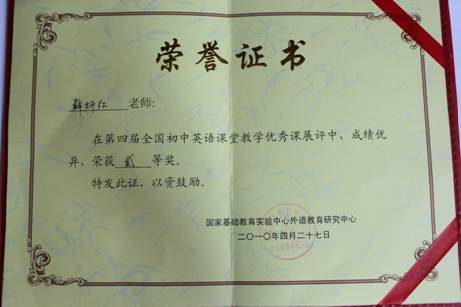 荣誉证书
薛炳仁 老师:
在第四届全国初中英语课堂教学优秀课展评中,成绩优
异,荣获 贰 等奖。
特发此证,以资鼓励。
国家基础教育实验中心外语教育研究中心
二〇一〇年四月二十七日